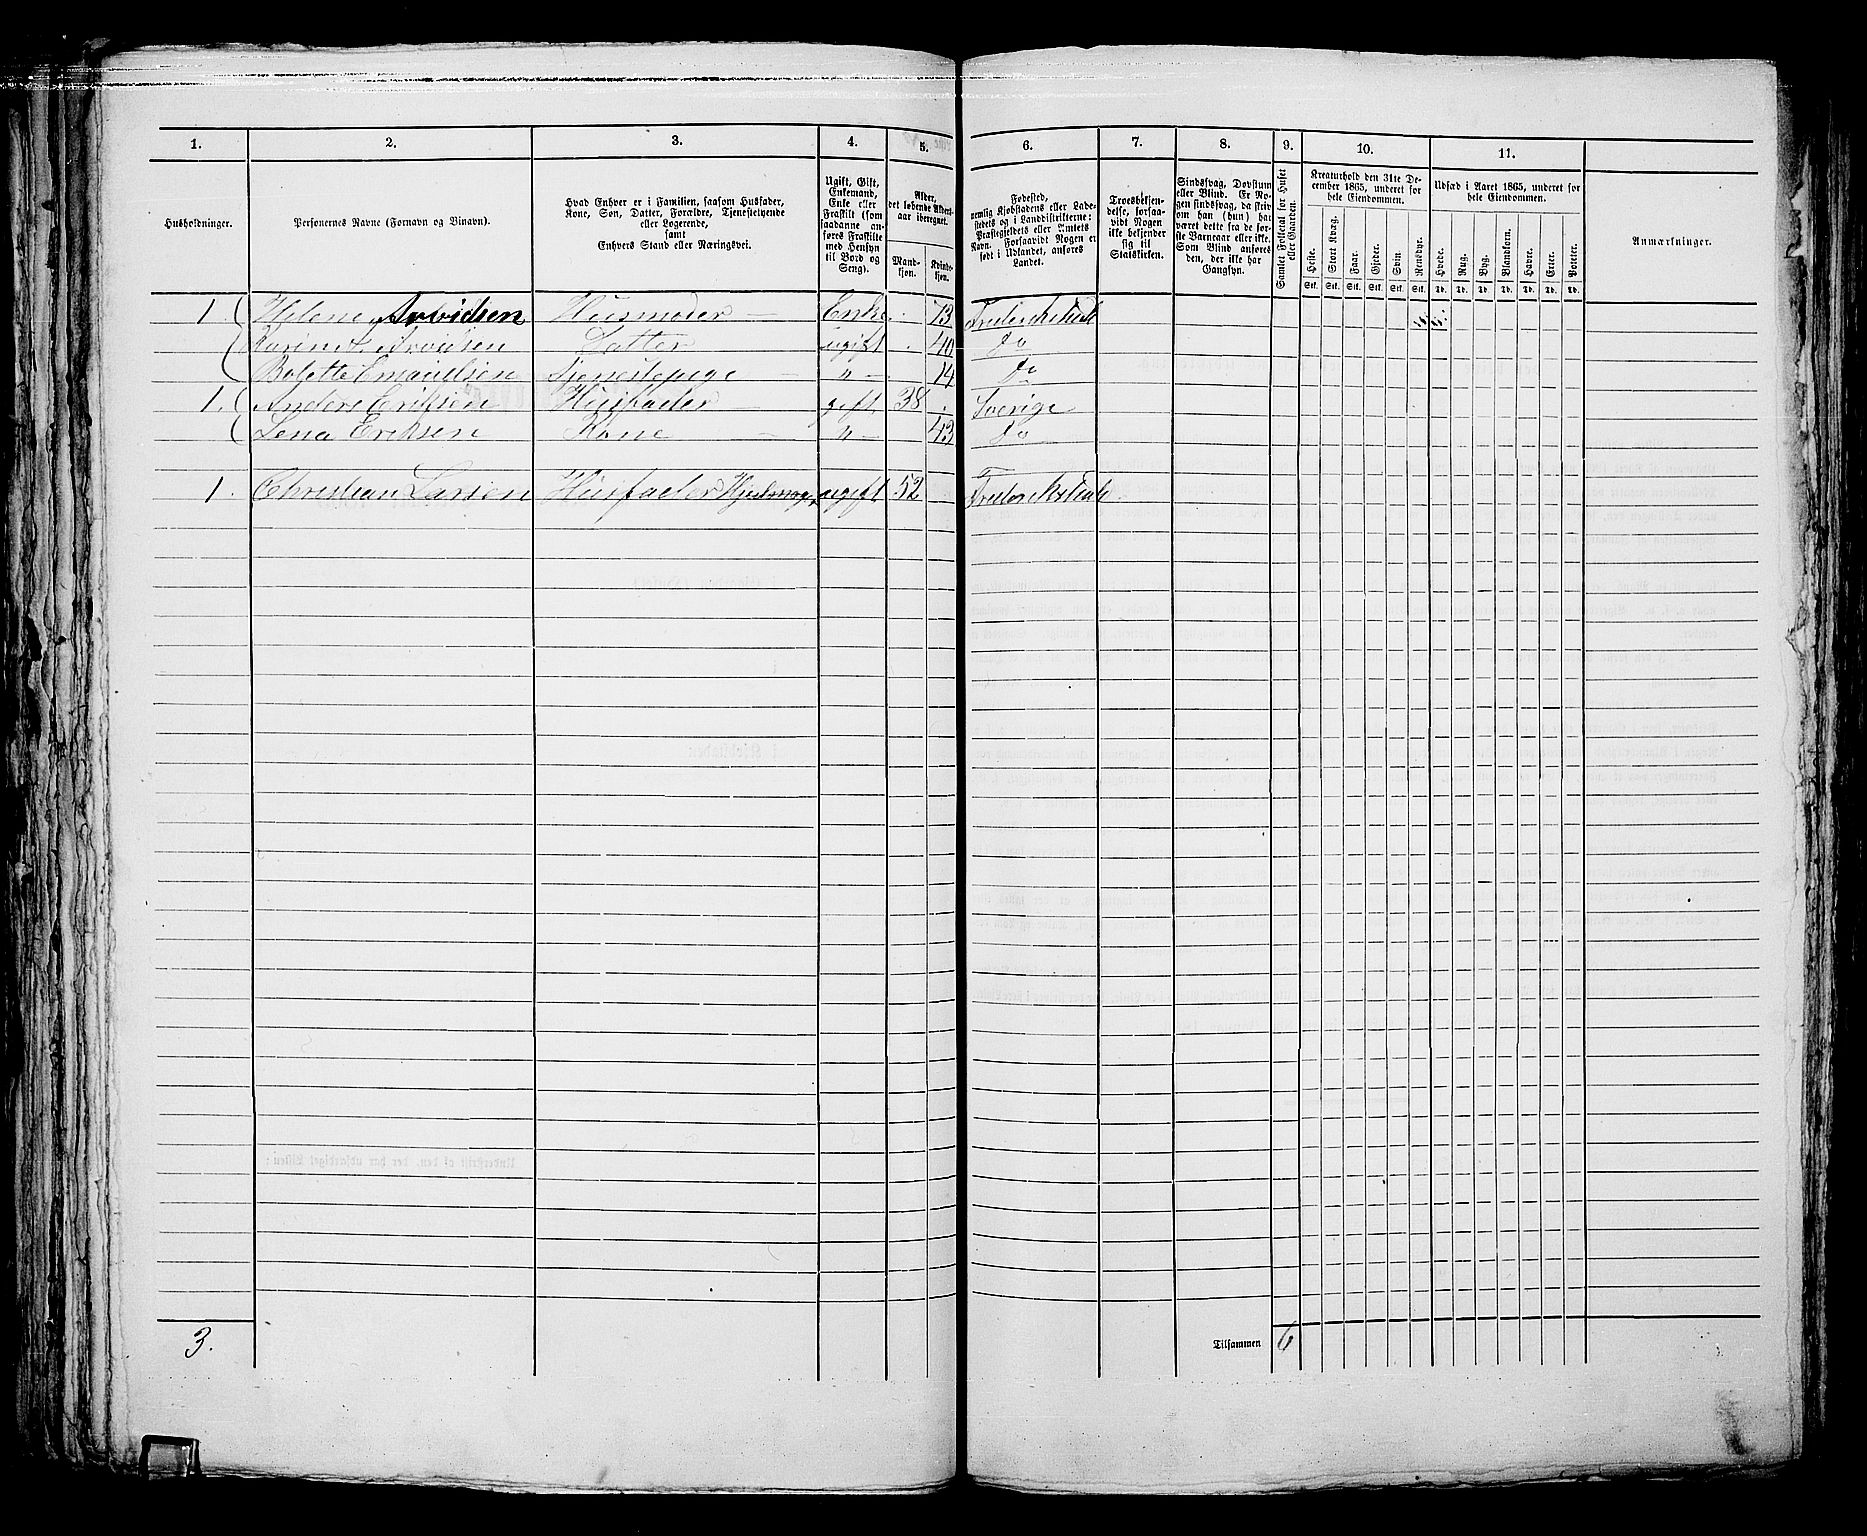 1. 2. 3. 4. 5. 6. 7. 8. 9. 10. 11.
Husholdninger.
Personernes Navne (Fornavn og Binavn).
Hvad Enhver er i Familien, saasom Husfader,
Kone, Søn, Datter, Forældre, Tjenestetyende
eller Logerende,
samt
Enhvers Stand eller Næringsvei.
Ugift, Gift,
Enkemand,
Enke eller
Fraskilt (som
saadanne an-
føres Fraskilte
med Hensyn
til Bord og
Seng).
Alder,
det løbende Alders-
aar iberegnet.
Mand-
kjøn.
Kvinde-
kjøn.
Fødested,
nemlig Kjøbstadens eller Lade-
stedets og i Landdistrikterne:
Præstegjeldets eller Amtets
Navn. Forsaavidt Nogen er
født i Udlandet, anføres
Landet.
Troesbekjen-
delse, forsaa-
vidt Nogen
ikke bekjender
sig til
Statskirken.
Sindssvag, Døvstum
eller Blind. Er No-
gen sindssvag, da skriv
om han (hun) har
været dette fra de før-
ste Barneaar eller ikke.
Som Blind anføres
den, der ikke har
Gangsyn.
Samlet Folketal for Huset
eller Gaarden.
Kreaturhold den 31te De-
cember 1865, underet for
hele Eiendommen.
Heste. Stort Kvæg. Faar. Gjeder. Svin. Rensdyr.
Stk. Stk. Stk. Stk. Stk. Stk.
Udsæd i Aaret 1865, underet for
hele Eiendommen.
Hvede. Rug. Byg. Blandkorn. Havre. Erter. Poteter.
Td. Td. Td. Td. Td. Td. Td.
Anmærkninger.
1 Helene Arvidsen Husmoder — Enke 73 Frederikstad
Karen A. Arvidsen Datter ugift 40 do
Bolette Emanuelsen Tjenestepige — " — 14 do
1. Anders Eriksen Huusfader — gift 38 Sverige
Lena Eriksen Kone — " — 43 do
1. Christian Larsen Huusfader Hjulmager ugift 52 Frederikstad
3. Tilsammen 6